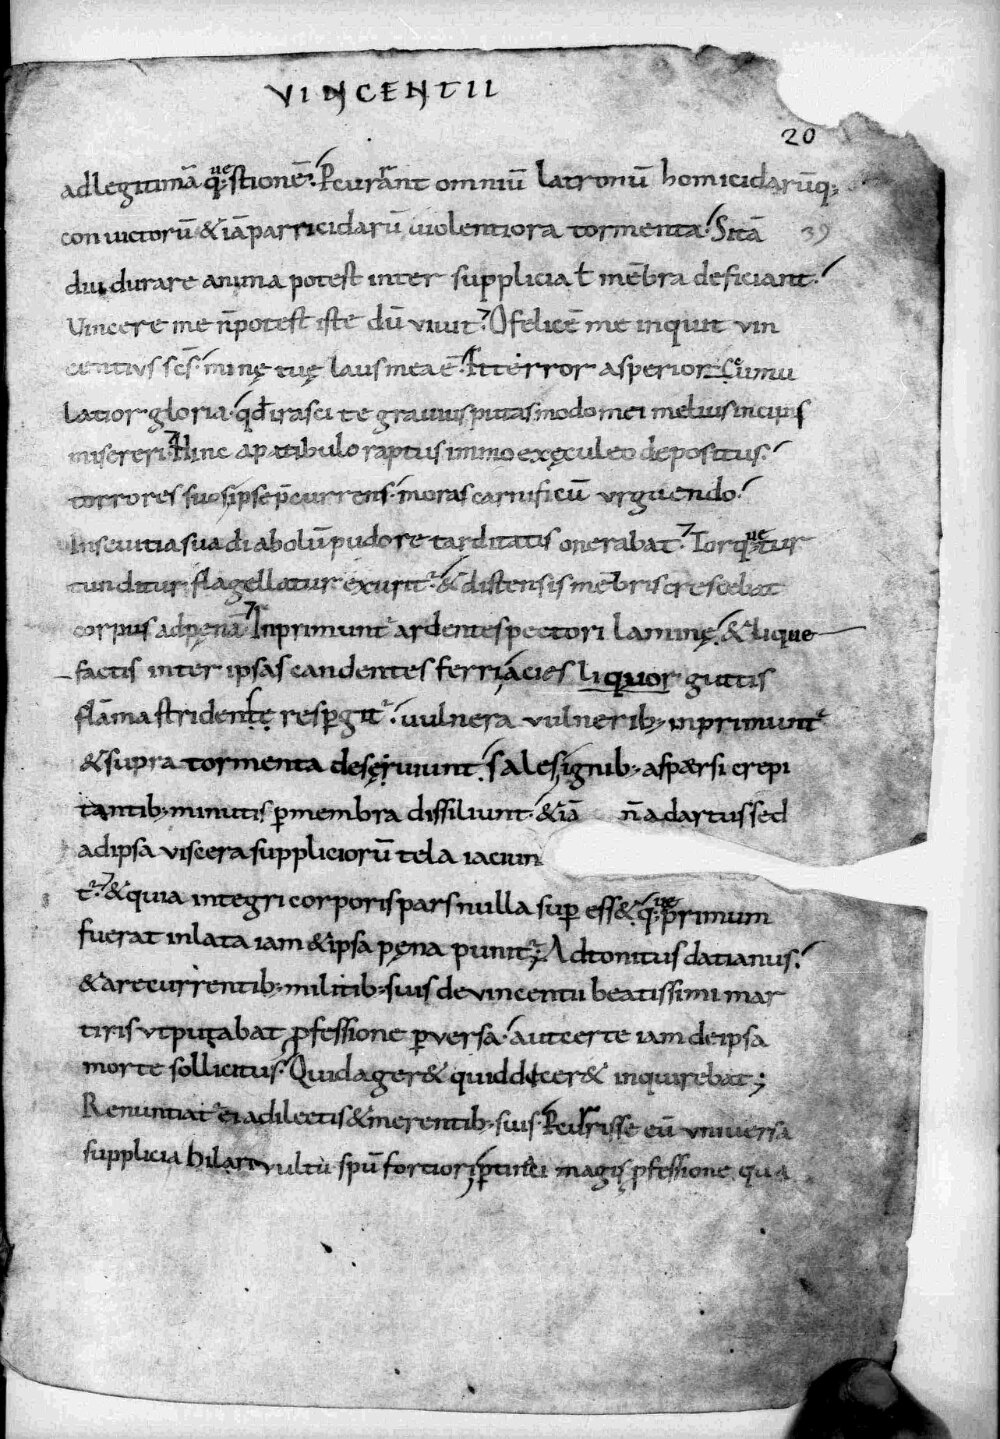 VINCENTII
20
ad legitimā q;ᵘᵉstionē. Pcurrant omniū latronū homicidarūq;
conuictorū & iā parricidarū uiolentiora tormenta. Si tā
39
diu durare anima potest inter supplicia ł mēbra deficiant.
Vincere me n̄ potest iste dū uiuit. O felicē me inquit vin
centivs sc̄s. minę tuę laus mea ē. Et terror asperior cumu
latior gloria. qđ irasci te grauius putas modo mei melius incipis
misereri. Hinc a patibulo raptus immo exęculeo depositus.
torrores suos ipse p̄currens. moras carnificū vrguendo.
In seuitia sua diabolū pudore tarditatis onerabat. Torq;ᵘᵉtur
tunditur flagellatur exurit̄. & distensis mēbris crescebat
corpus ad pęnā. Inprimunt̄ ardentes pectori laminę. & lique
factis inter ipsas candentes ferri acies liquor guttis
flāma stridentę respgit̄. uulnera vulnerib; inprimunt̄
& supra tormenta deseruiunt. sales ignib; aspærsi crepi
tantib; minutis p membra dissiliunt. & iā n̄ ad artus sed
ad ipsa viscera suppliciorū tela iaciun
t̄. & quia integri corporis pars nulla sup ess& q;ᵘᵉ primum
fuerat inlata iam & ipsa pęna punit̄. Adtonitus datianus.
& a recurrentib; militib; suis de vincentii beatissimi mar
tiris vt putabat pfessione pversa. aut certe iam de ipsa
morte sollicitus. Quid ager& quid dicer& inquirebat;
Renuntiat̄ ei a dilectis & merentib; suis. Pcucurrisse eū vniuersa
supplicia hilari vultu spū fortiori ptinēi magis pfessione qua